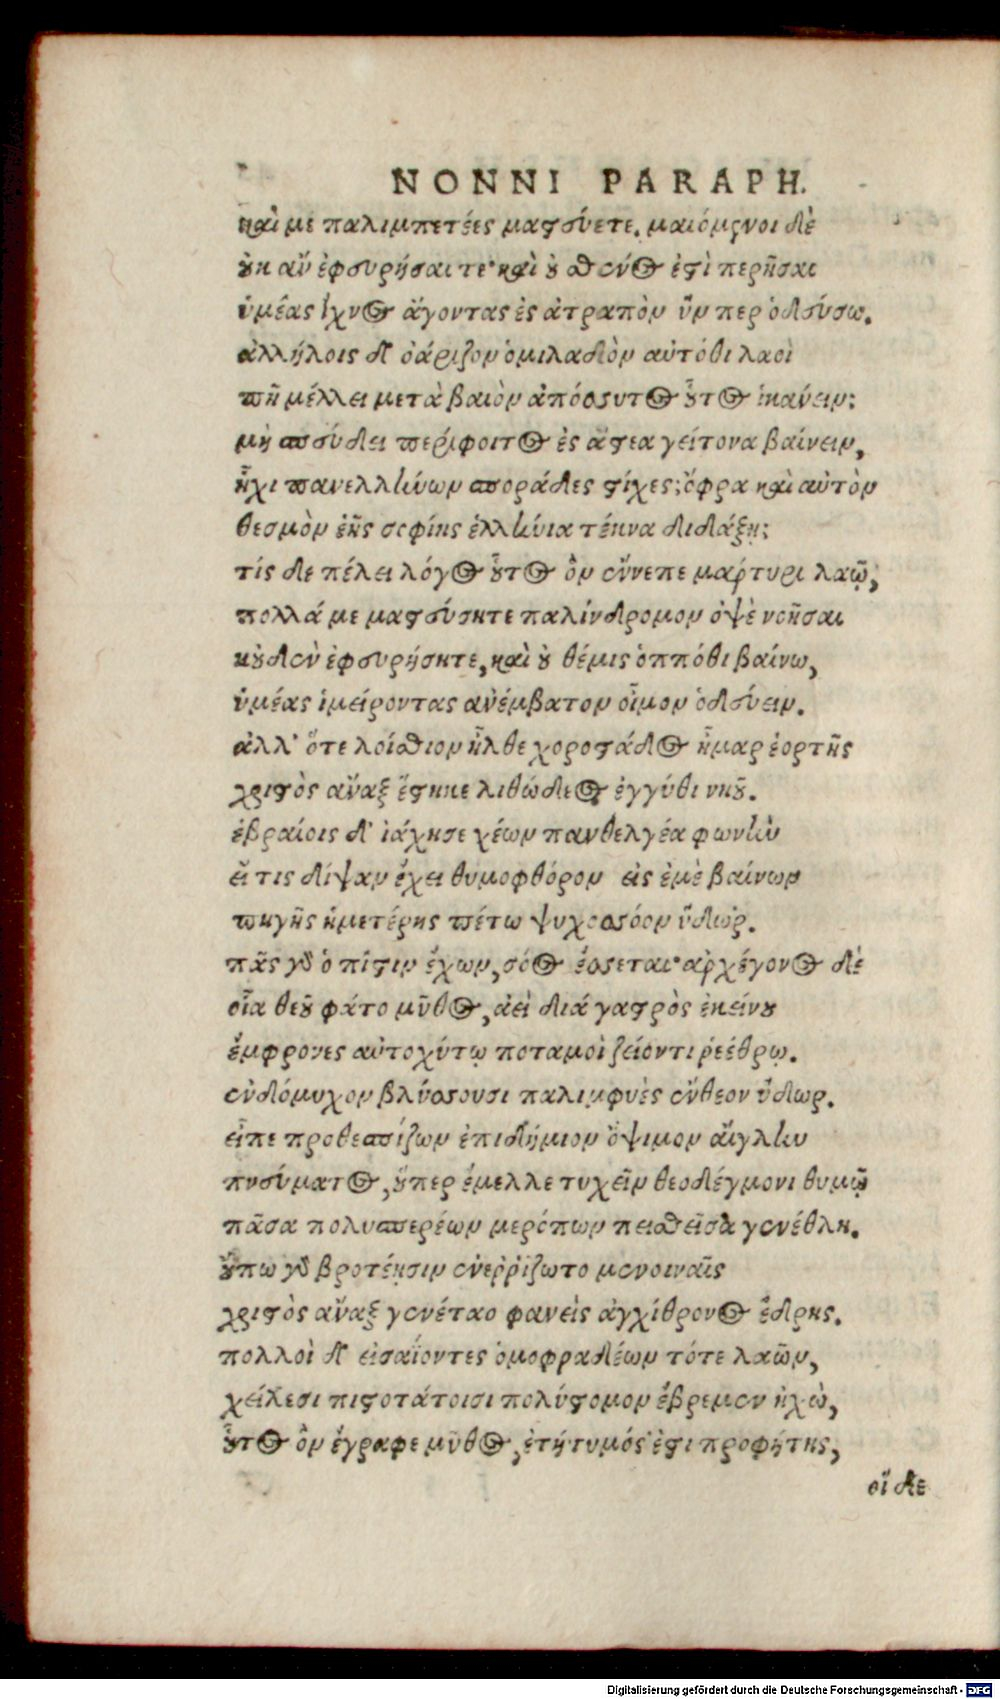 NONNI PARAPH.
καί με παλιμπετέες μαστεύετε. μαιόμενοι δὲ
οὐκ ἂν ἐφευρήσαιτε· καὶ οὐ σθένος ἐστὶ περῆσαι
ὑμέας ἴχνος ἄγοντας ἐς ἀτραπὸν ἥν περ ὁδεύσω.
ἀλλήλοις δ' ὀάριζον ὁμιλαδὸν αὐτόθι λαοὶ
πῆ μέλλει μετὰ βαιὸν ἀπόσσυτος οὗτος ἱκάνειν;
μὴ σπεύδει περίφοιτος ἐς ἄστεα γείτονα βαίνειν,
ἧχι πανελλήνων σποράδες στίχες; ὄφρα καὶ αὐτὸν
θεσμὸν ἑῆς σοφίης ἑλλήνια τέκνα διδάξῃ;
τίς δε πέλει λόγος οὗτος ὃν ἔννεπε μάρτυρι λαῷ;
πολλά με μαστεύσητε παλίνδρομον ὀψὲ νοῆσαι
κοὐδὲν ἐφευρήσητε, καὶ οὐ θέμις ὁππόθι βαίνω,
ὑμέας ἱμείροντας ἀνέμβατον οἶμον ὁδεύειν.
ἀλλ' ὅτε λοίσθιον ἦλθε χοροστάδος ἦμαρ ἑορτῆς
χριστὸς ἄναξ ἕστηκε λιθώδεος ἐγγύθι νηοῦ.
ἑβραίοις δ' ἰάχησε χέων πανθελγέα φωνὴν
εἴ τις δίψαν ἔχει θυμοφθόρον εἰς ἐμὲ βαίνων
πηγῆς ἡμετέρης πιέτω ψυχοσσόον ὕδωρ.
πᾶς γὰρ ὁ πίστιν ἔχων, σόος ἔσσεται· ἀρχέγονος δὲ
οἷα θεοῦ φάτο μῦθος, ἀεὶ διά γαστρὸς ἐκείνου
ἔμφρονες αὐτοχύτῳ ποταμοὶ ζείοντι ῥεέθρῳ.
ἐνδόμυχον βλύσσουσι παλιμφυὲς ἔνθεον ὕδωρ.
εἶπε προθεσπίζων ἐπιδήμιον ὄψιμον αἴγλην
πνεύματος, οὗπερ ἔμελλε τυχεῖν θεοδέγμονι θυμῷ
πᾶσα πολυσπερέων μερόπων πεισθεῖσα γενέθλη.
οὔπω γὰρ βροτέῃσιν ἐνερῥίζωτο μενοιναῖς
χριστὸς ἄναξ γενέταο φανεὶς ἀγχίθρονος ἕδρης.
πολλοὶ δ' εἰσαΐοντες ὁμοφραδέων τότε λαῶν,
χείλεσι πιστοτάτοισι πολύστομον ἔβρεμεν ἠχὼ,
οὗτος ὃν ἔγραφε μῦθος, ἐτήτυμός ἐστι προφήτης,
οἵ δε
Digitalisierung gefördert durch die Deutsche Forschungsgemeinschaft - DFG